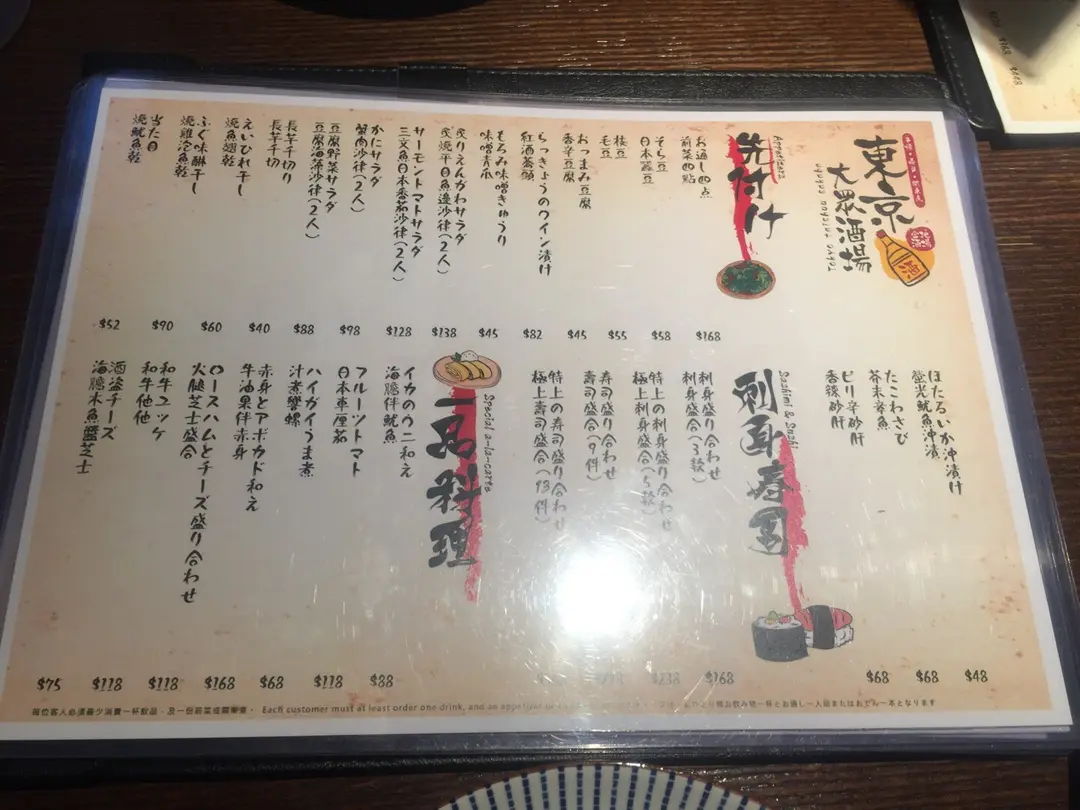 東京
大眾酒場
tokyo taishu sakaba
酒
先付け
Appetizers
お通し四点
前菜四點
$168
そら豆
日本蠶豆
$58
枝豆
毛豆
$55
おつまみ豆腐
香辛豆腐
$45
らっきょうのワイン漬け
紅酒蕎頭
$82
もろみ味噌きゅうり
味噌青瓜
$45
炙りえんがわサラダ
炙燒平目魚邊沙律(2人)
$138
サーモントマトサラダ
三文魚日本番茄沙律(2人)
$128
かにサラダ
蟹肉沙律(2人)
$98
豆腐野菜サラダ
豆腐海藻沙律(2人)
$88
長芋千切り
長芋千切
$40
えいひれ干し
燒魚翅乾
$60
ふぐ味醂干し
燒雞泡魚乾
$90
当た目
燒魷魚乾
$52
ほたるいか沖漬け
螢光魷魚沖漬
$48
たこわさび
芥末章魚
$68
ピリ辛砂肝
香辣砂肝
$68
刺身寿司
Sashimi & Sushi
刺身盛り合わせ
刺身盛合(3款)
$168
特上の刺身盛り合わせ
極上刺身盛合(5款)
寿司盛り合わせ
壽司盛合(9件)
特上の寿司盛り合わせ
極上壽司盛合(13件)
一品料理
Special a-la-carte
イカのウニ和え
海膽伴魷魚
$88
フルーツトマト
日本車厘茄
$118
ハイガイうま煮
汁煮響螺
$68
赤身とアボカド和え
牛油果伴赤身
$168
ロースハムとチーズ盛り合わせ
火腿芝士盛合
$118
和牛ユッケ
和牛他他
$118
酒盗チーズ
海膽木魚醬芝士
$75
每位客人必須最少消費一杯飲品，及一份前菜或關東煮。 Each customer must at least order one drink, and an appetizer
飲み物一杯とお通し一人前またはおでん一本となります